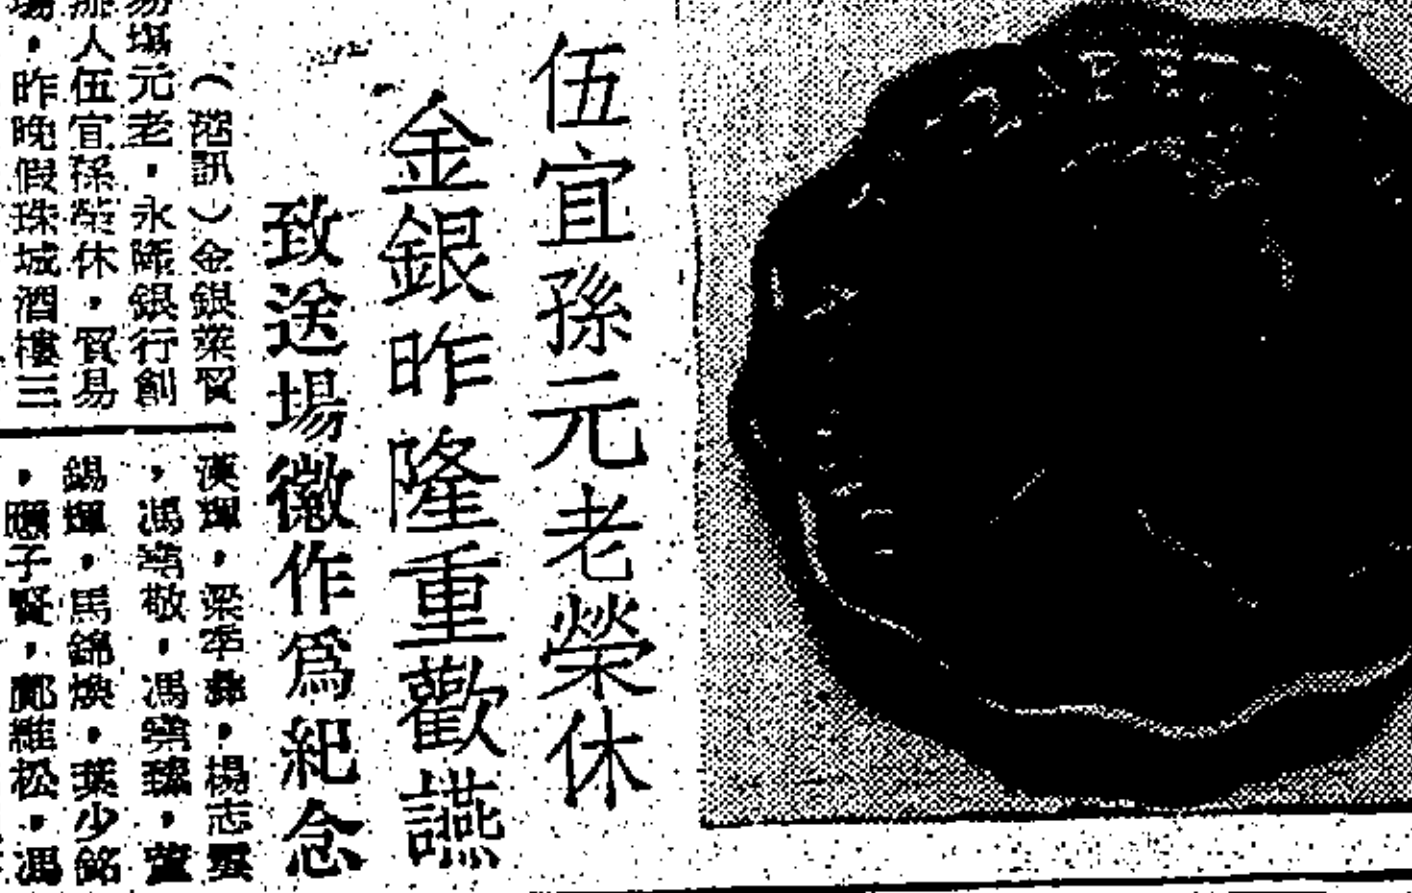 伍宜孫元老榮休
金銀昨隆重歡讌
致送場徽作爲紀念
（港訊）金銀業貿
易場元老，永隆銀行創
辦人伍宜孫榮休，貿易
場，昨晚假珠城酒樓三
漢輝，梁季彝，楊志雲
，馮敬，馮
錫輝，馬錦煥，葉少銘
，子賢，鄺維松，馮